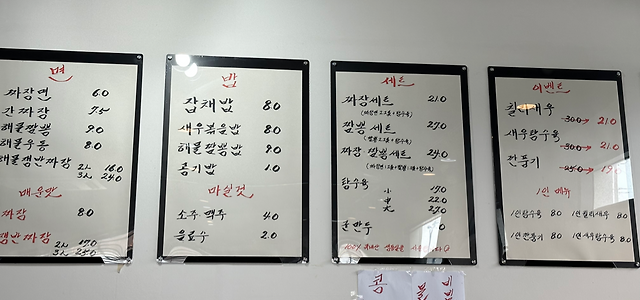 면
짜장면 6.0
간짜장 7.5
해물짬뽕 9.0
해물우동 8.0
해물쟁반짜장 2人 16.0
3人 24.0
매운맛
짜장 8.0
쟁반짜장 2人 17.0
3人 25.0
밥
잡채밥 8.0
새우볶음밥 8.0
해물짬뽕밥 9.0
공기밥 1.0
마실것
소주 맥주 4.0
음료수 2.0
세트
짜장세트 21.0
(짜장면 2그릇+탕수육)
짬뽕세트 27.0
(짬뽕 2그릇+탕수육)
짜장 짬뽕세트 24.0
탕수육 小
中 22.0
大 27.0
군만두
이벤트
칠리새우 30.0 → 21.0
새우탕수육 30.0 → 21.0
깐풍기 25.0 →
1인 메뉴
1인탕수육 8.0 1인칠리새우 8.0
1인깐풍기 8.0 1인새우탕수육 8.0
콩